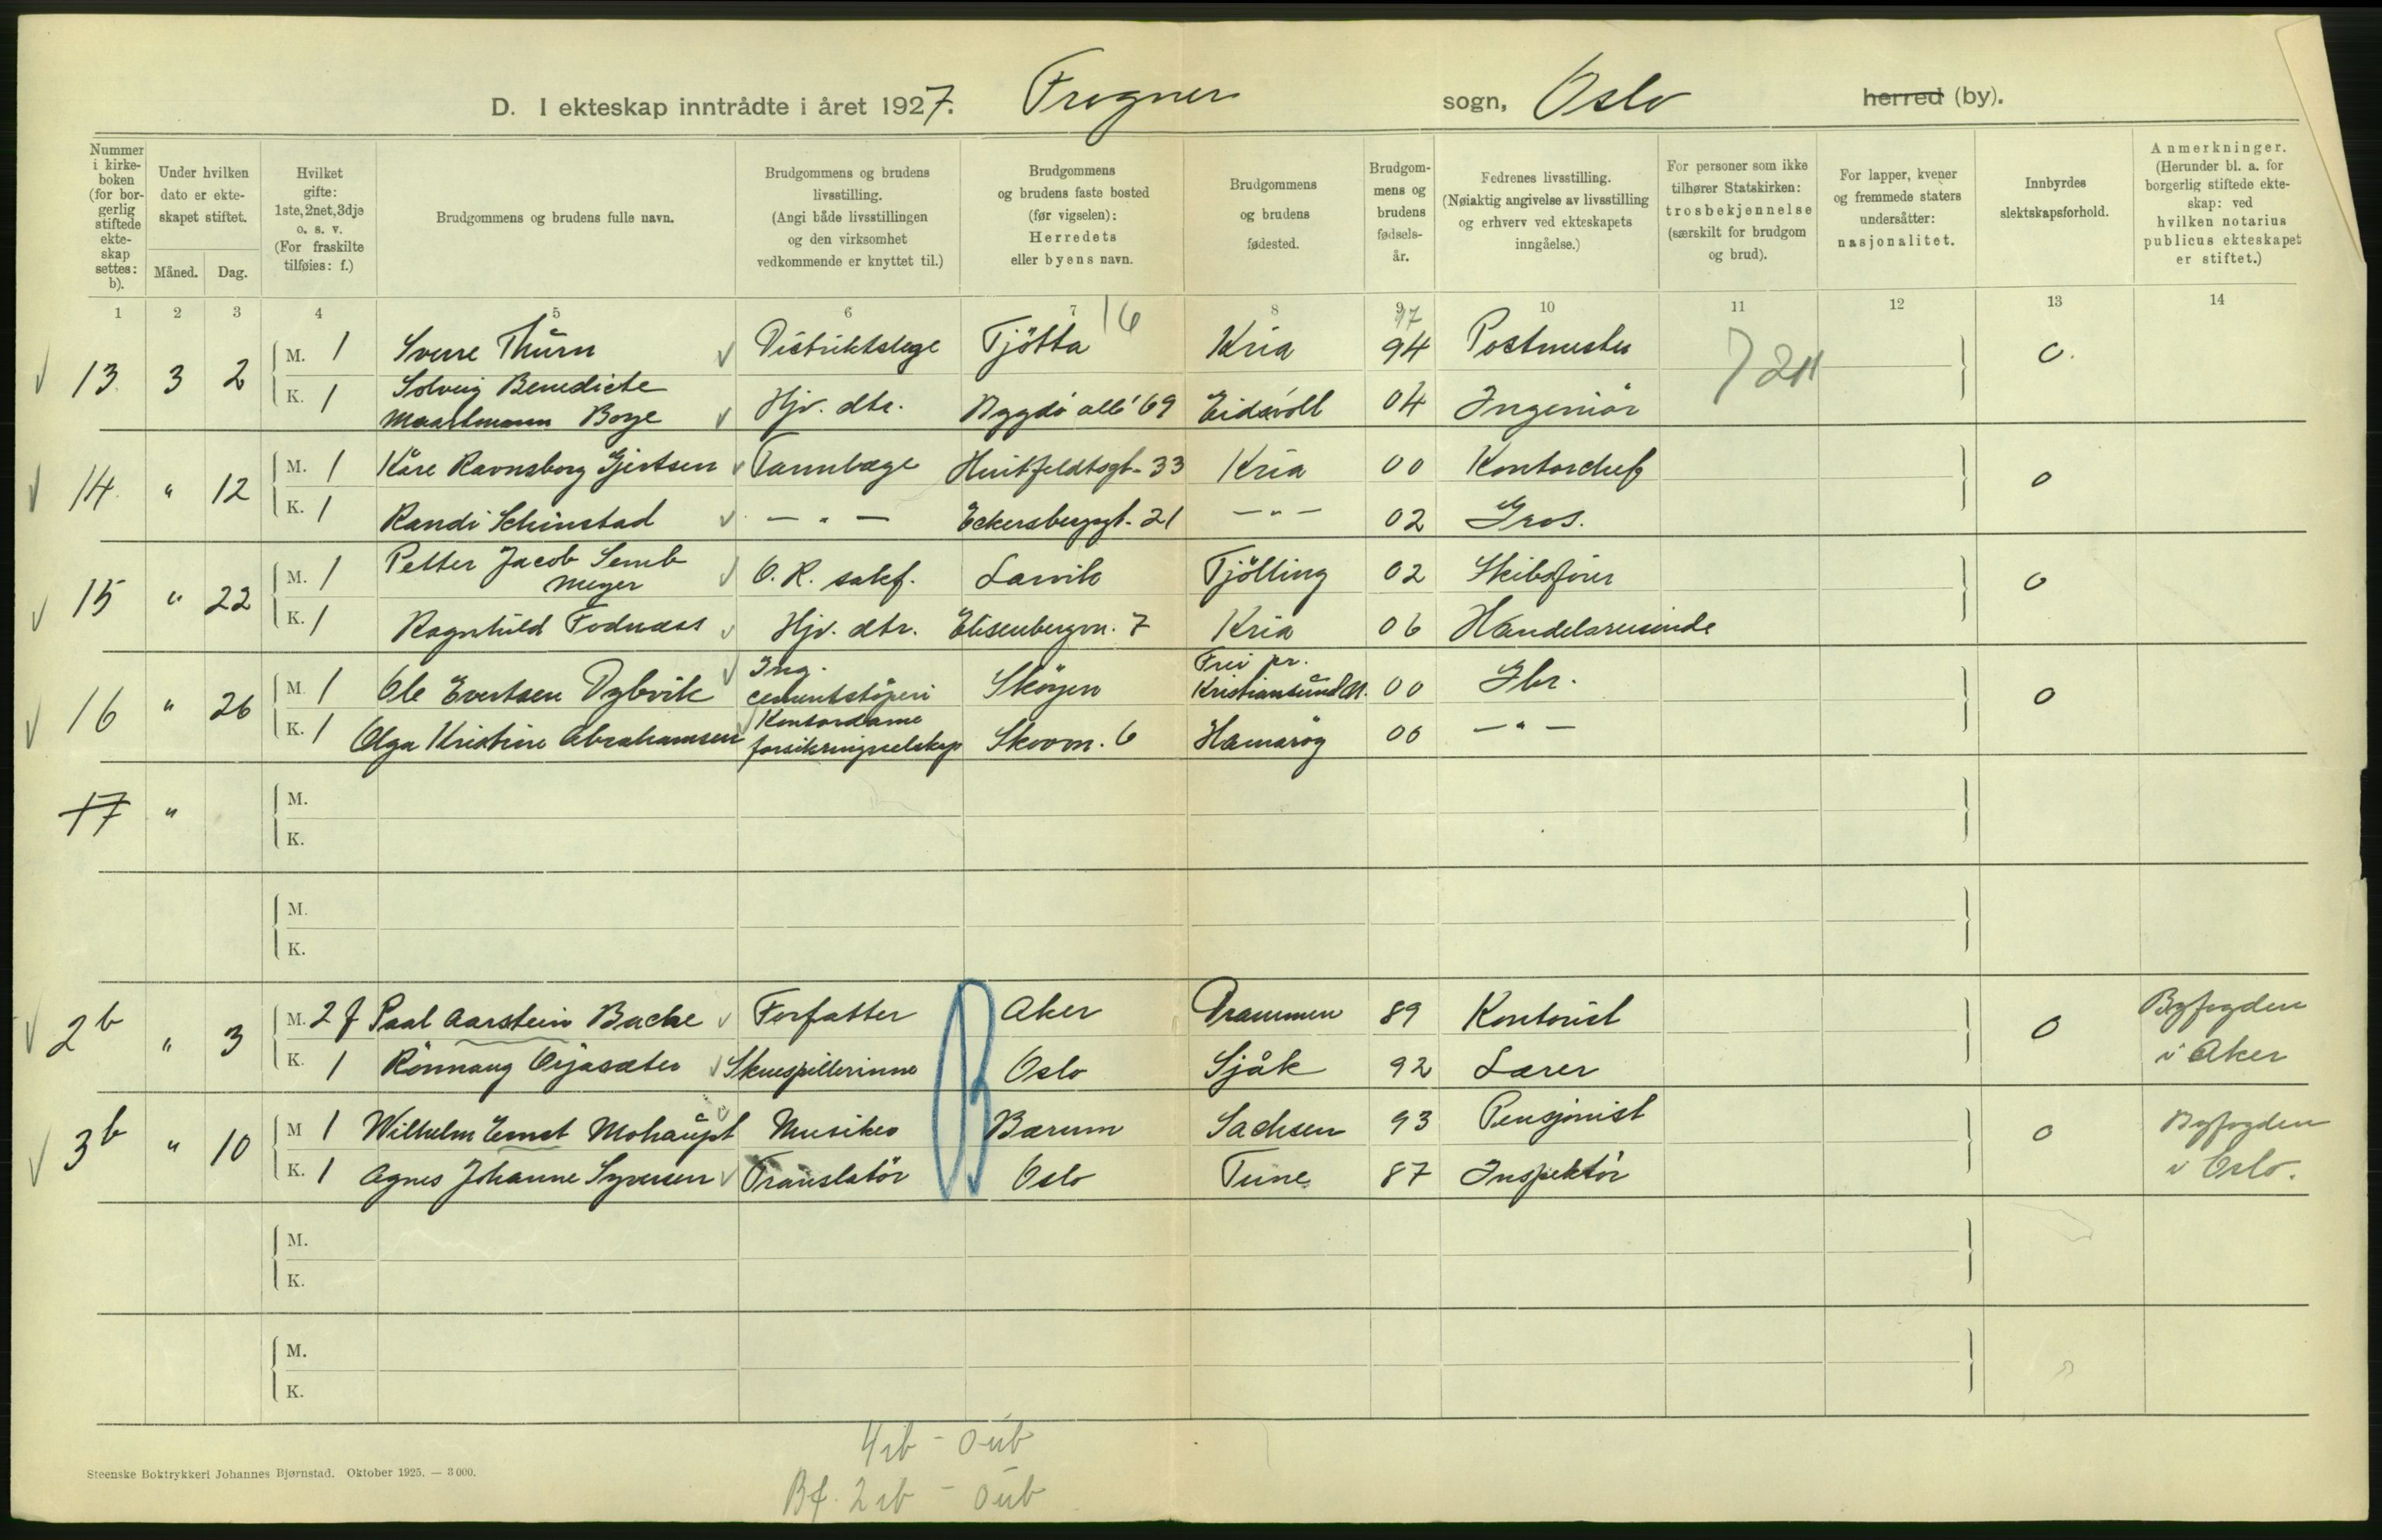 D. I ekteskap inntrådte i året 1927. Frogner sogn, Oslo herred (by).
Nummer i kirke-boken (for bor-gerlig stiftede ekte-skap settes: b).
Under hvilken dato er ekte-skapet stiftet.
Måned. Dag.
Hvilket gifte: 1ste, 2net, 3dje o. s. v. (For fraskilte tilføies: f.)
Brudgommens og brudens fulle navn.
Brudgommens og brudens livsstilling. (Angi både livsstillingen og den virksomhet vedkommende er knyttet til.)
Brudgommens og brudens faste bosted (før vigselen): Herredets eller byens navn.
Brudgommens og brudens fødested.
Brudgom-mens og brudens fødsels-år.
Fedrenes livsstilling. (Nøiaktig angivelse av livsstilling og erhverv ved ekteskapets inngåelse.)
For personer som ikke tilhører Statskirken: trosbekjennelse (særskilt for brudgom og brud).
For lapper, kvener og fremmede staters undersåtter: nasjonalitet.
Innbyrdes slektskapsforhold.
Anmerkninger. (Herunder bl. a. for borgerlig stiftede ekte-skap: ved hvilken notarius publicus ekteskapet er stiftet.)
1 2 3 4 5 6 7 8 9 10 11 12 13 14
16 97
13. 3 2 M. 1 Sverre Thürn Distriktslege Tjötta Kria 94 Postmester 0.
K. 1 Solveig Benedicte Maaltmann Borge Hjv. dtr. Bygdö allé 69 Eidsvoll 04 Ingeniör
14. " 12 M. 1 Kåre Ravnsborg Gjertsen Tannlæge Huitfeldtsgt. 33 Kria 00 Kontorchef 0
K. 1 Randi Schinstad — " — Eckersbergsgt. 21 — " — 02 Gros.
15 " 22 M. 1 Petter Jacob Semb Meyer O. R. sakf. Larvik Tjölling 02 Skibsförer 0
K. 1 Ragnhild Fodnæss Hjv. dtr. Elisenbergvn. 7 Kria 06 Handelsreisende
16 " 26 M. 1 Ole Evertsen Dybvik Ing. cementstöperi Sköyen Frei pr. Kristiansund N. 00 Gbr. 0
K. 1 Olga Kristine Abrahamsen Kontordame forsikringsselskap Skovvn. 6 Hamaröy 00 — " —
17 " M.
K.
M.
K.
2b " 3 M. 2 f Paal Aarstein Backe Forfatter Aker Drammen 89 Kontorist 0 Byfogden
K. 1 Rönnaug Örjasæter Skuespillerinne Oslo Sjåk 92 Lærer i Aker
3b " 10 M 1 Wilhelm Ernst Mohaupt Musiker Bærum Sachsen 93 Pensjonist 0 Byfogden
K. 1 Agnes Johanne Syversen Translatör Oslo Tune 87 Inspektör i Oslo.
M.
K.
M.
K.
4 ib - 0 uib
Bf. 2 ib - 0 uib
Steenske Boktrykkeri Johannes Bjørnstad. Oktober 1925. — 3000.